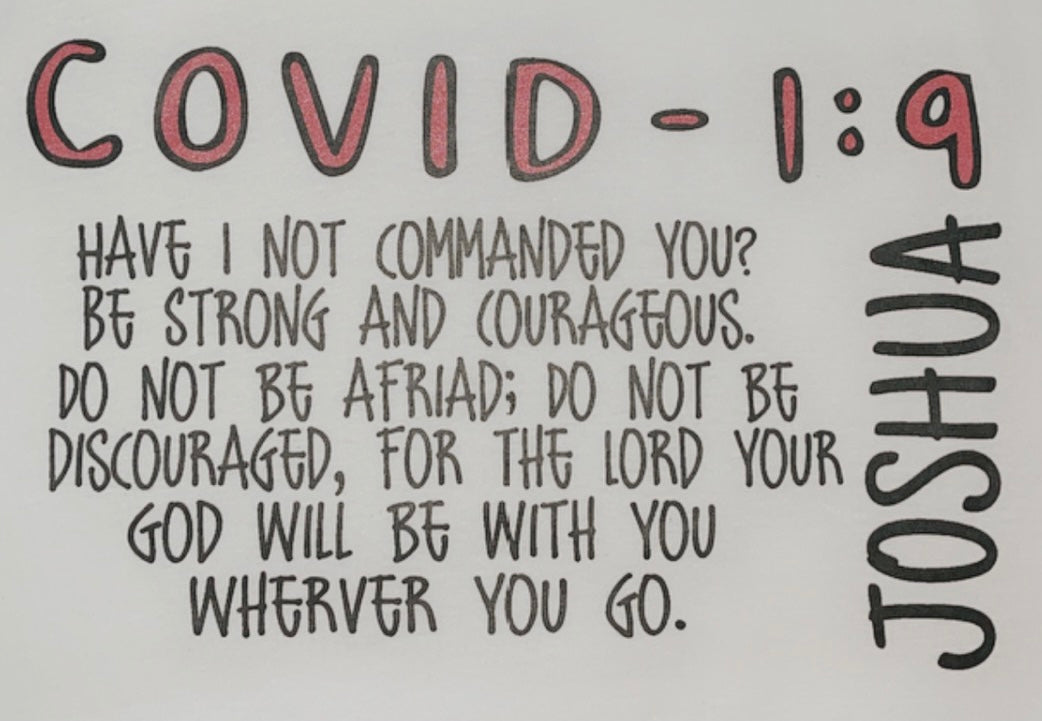 COVID - 1:9
HAVE I NOT COMMANDED YOU?
BE STRONG AND COURAGEOUS.
DO NOT BE AFRIAD; DO NOT BE
DISCOURAGED, FOR THE LORD YOUR
GOD WILL BE WITH YOU
WHERVER YOU GO.
JOSHUA